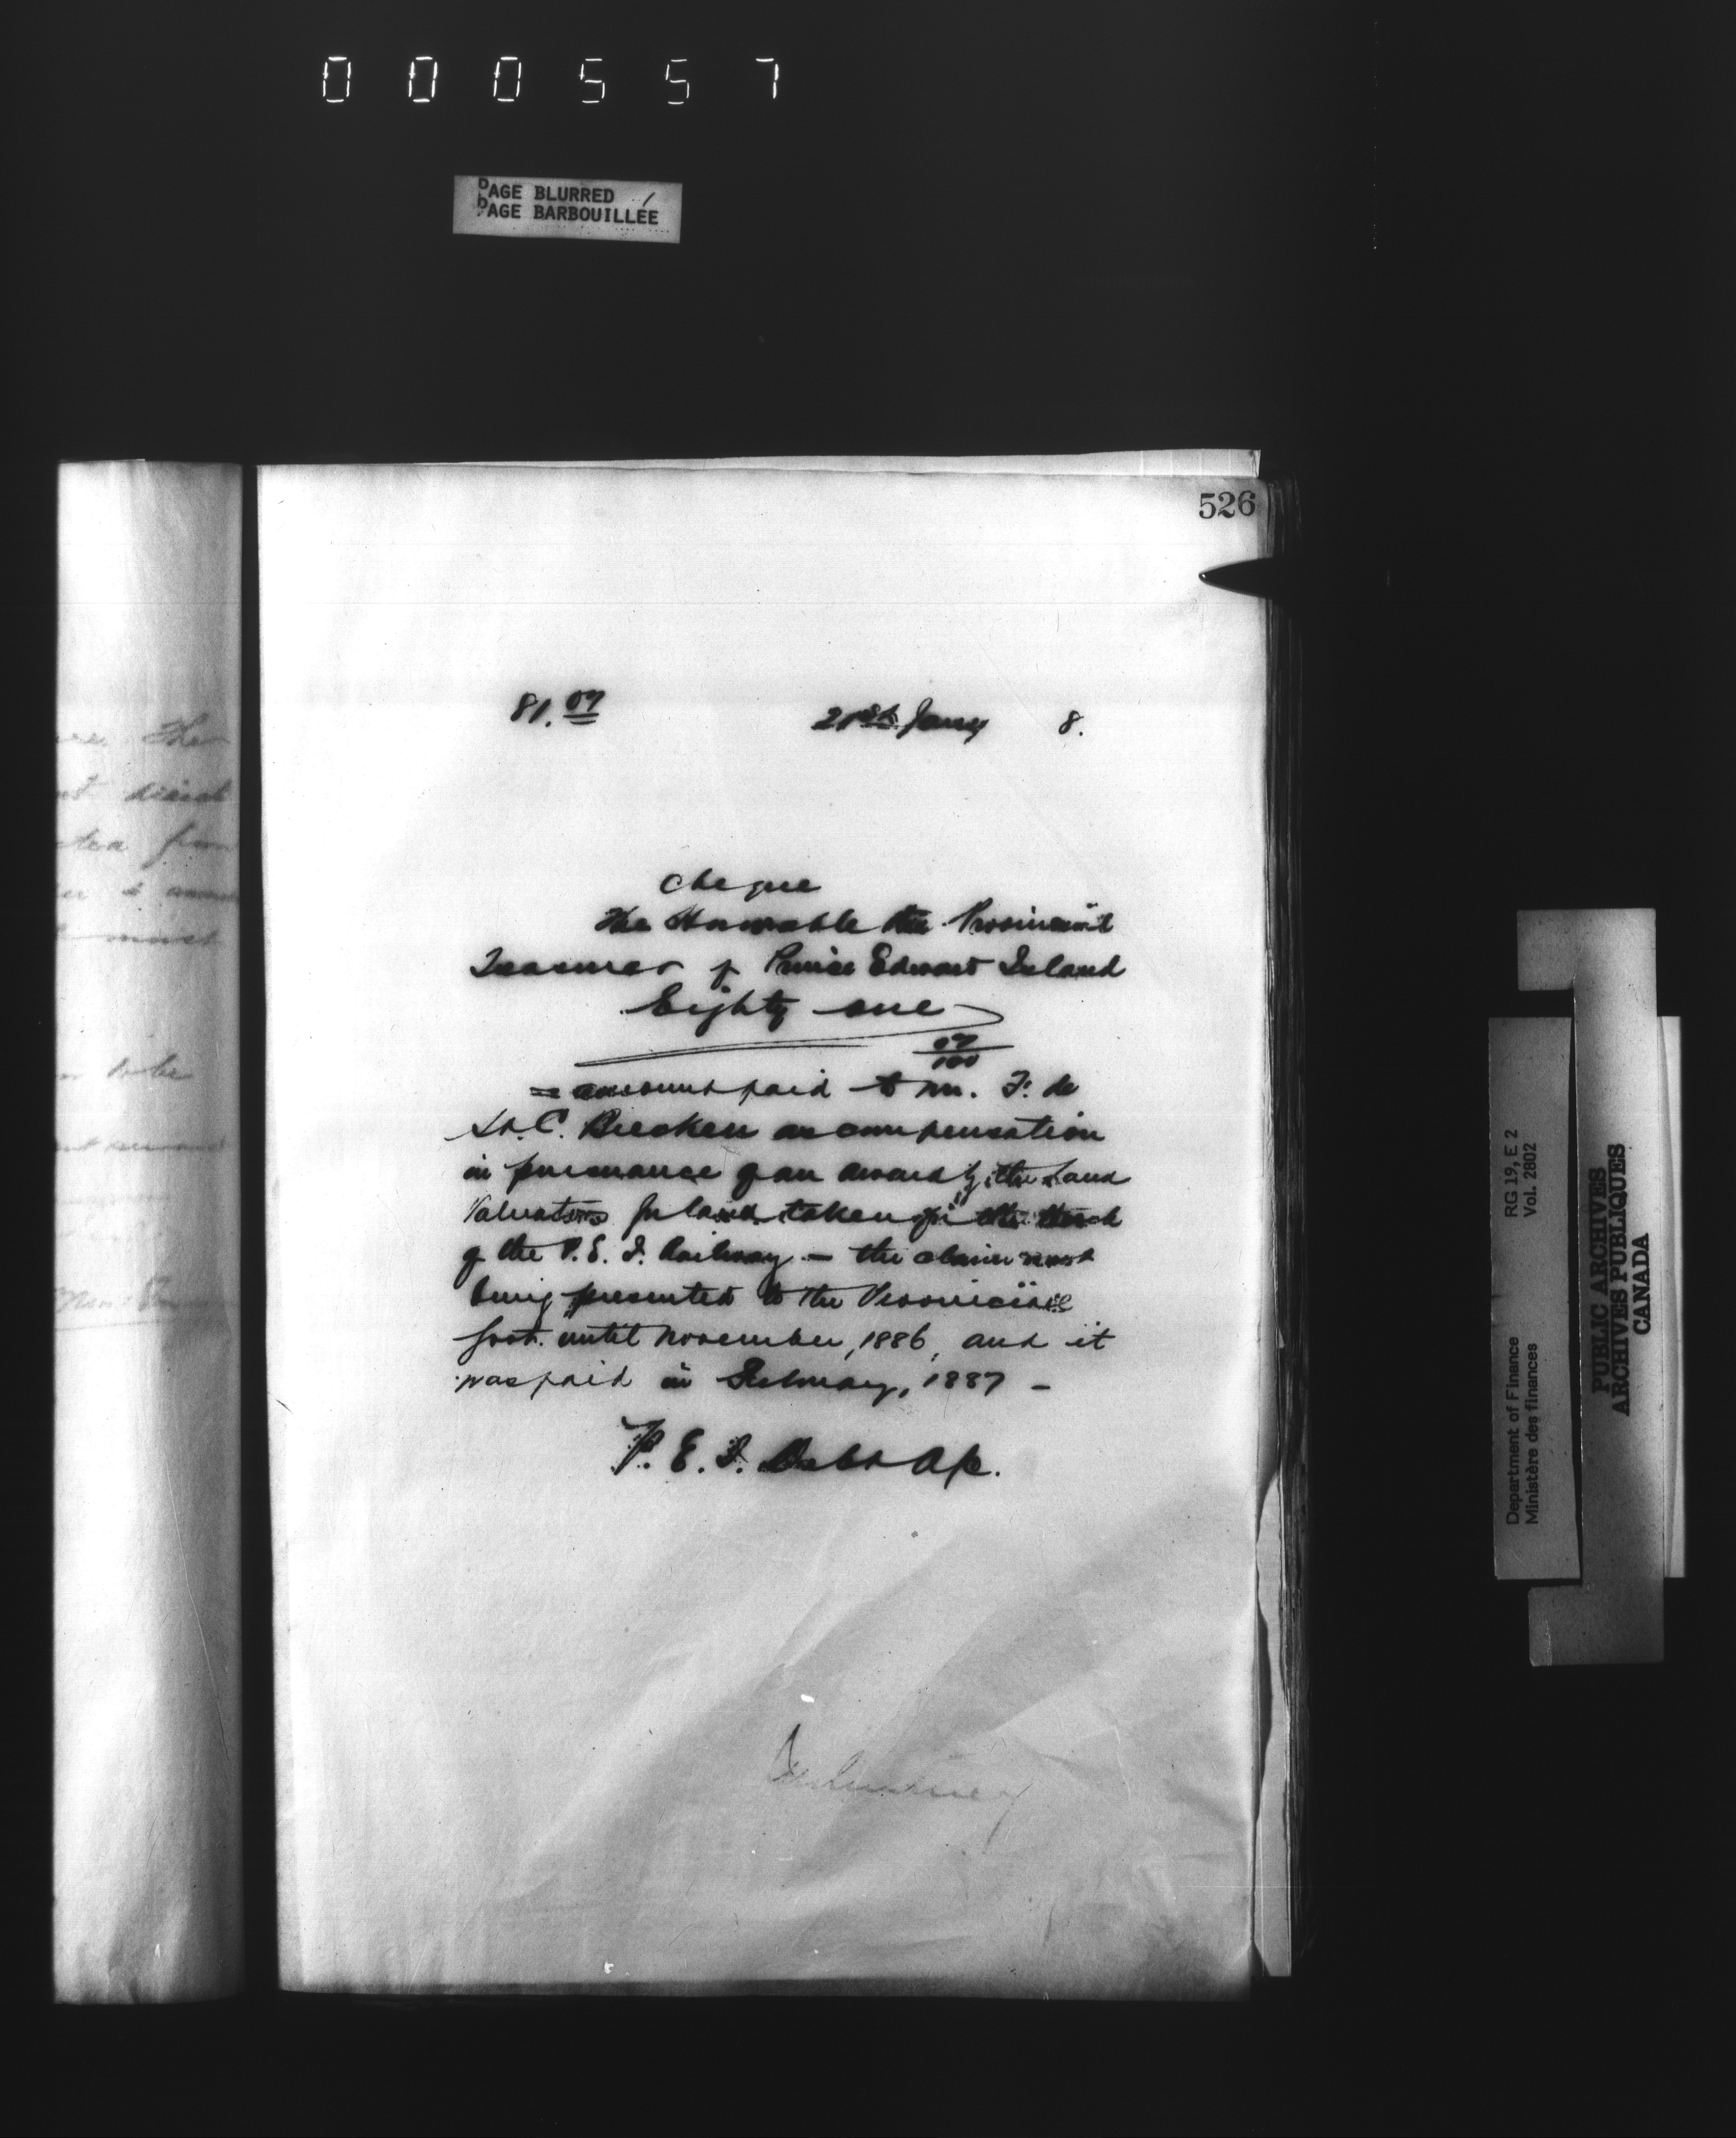 000557
PAGE BLURRED
PAGE BARBOUILLÉE
526
81.07
21st Jany 8.
Cheque
The Honorable the Provincial
Treasurer of Prince Edward Island
Eighty one
07/100
= amount paid to Mr. F. de
St. C. Brecken as compensation
in pursuance of an award by the Land
Valuators for land taken for the
of the P. E. I. Railway – the claim not
being presented to the Provincial
Govt. until November, 1886, and it
was paid in February, 1887 –
P. E. I. Debt a/c.
the
direct
from
must
to be
RG 19, E 2
Vol. 2802
Department of Finance
Ministère des finances
PUBLIC ARCHIVES
ARCHIVES PUBLIQUES
CANADA